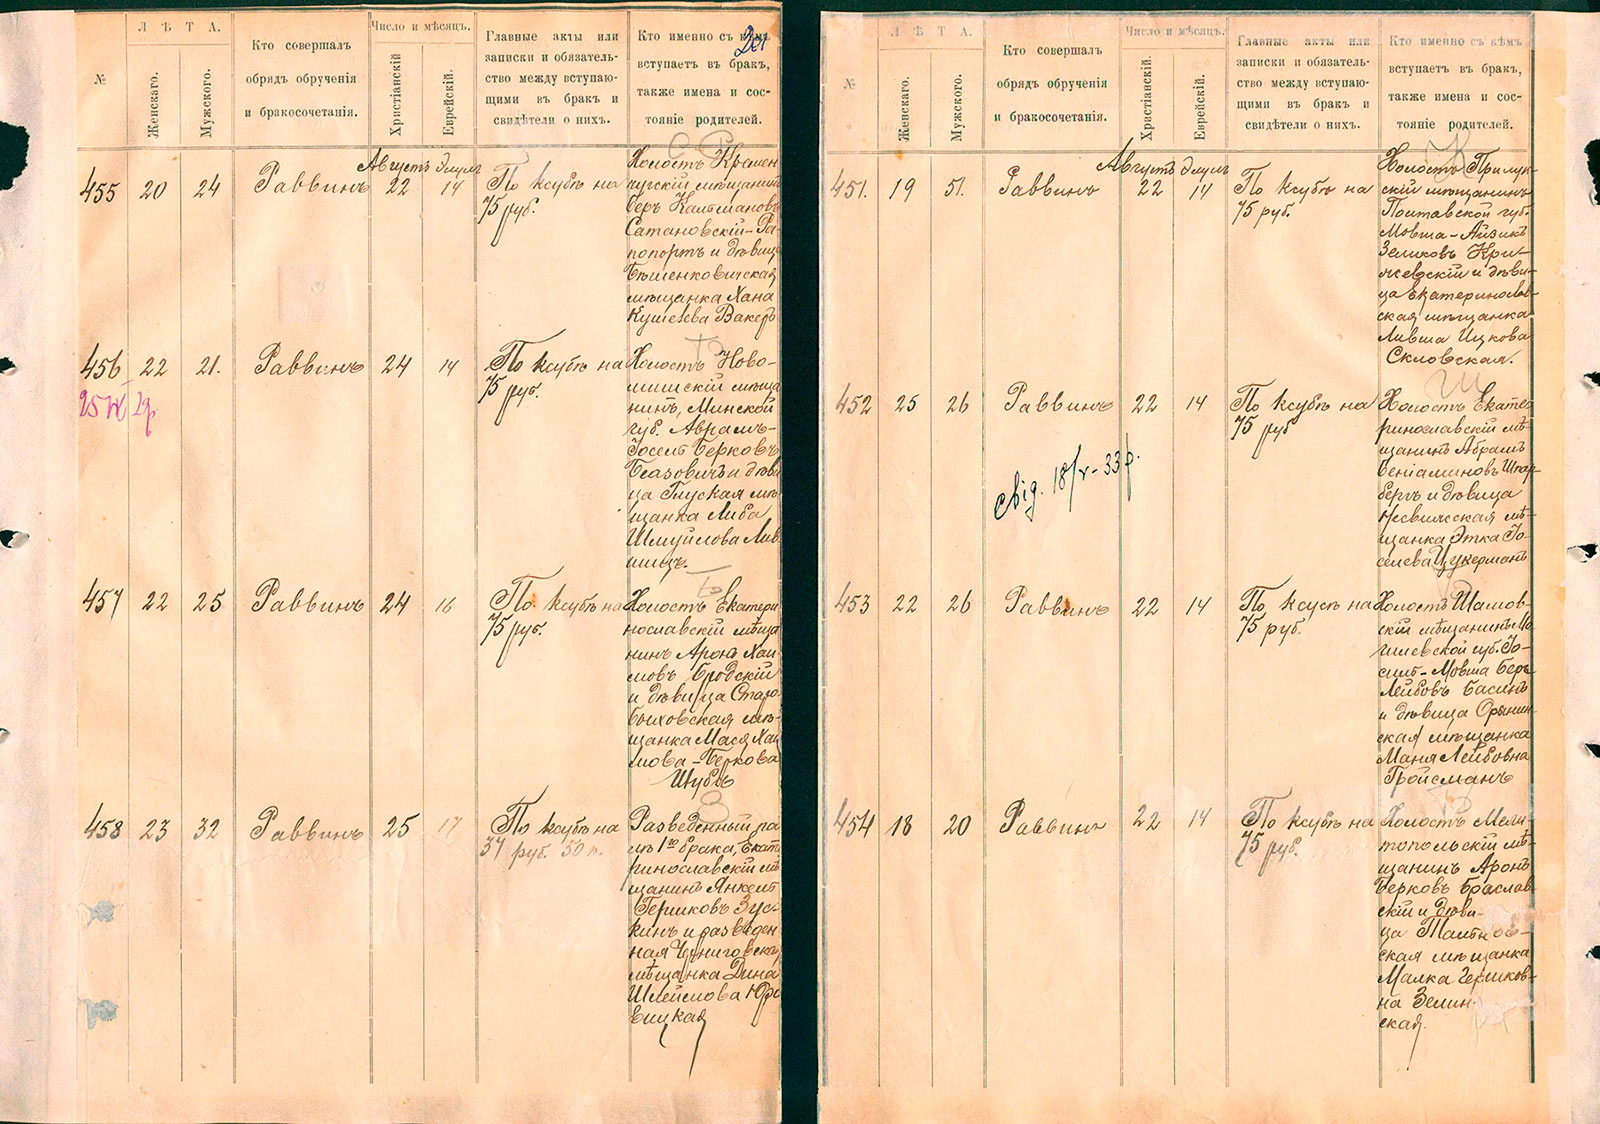 Л Ѣ Т А.
Число и мѣсяцъ.
№
Женскаго.
Мужского.
Кто совершалъ
обрядъ обрученія
и бракосочетанія.
Христіанскій
Еврейскій.
Главные акты или
записки и обязатель-
ство между вступаю-
щими въ бракъ и
свидѣтели о нихъ.
Кто именно съ кѣмъ
вступаетъ въ бракъ,
также имена и сос-
тояніе родителей.
Августъ Элулъ
455 20 24 Раввинъ 22 14
По ксубѣ на
75 руб.
Холостъ Кремен
чугскій мѣщанинъ
Беръ Калмановъ
Сатановскій-Ра
попортъ и дѣвица
Бѣшенковичская
мѣщанка Хана
Кушелева Вакеръ
456 22 21. Раввинъ 24 14
По ксубѣ на
75 руб.
Холостъ Ново-
мышскій мѣща
нинъ, Минской
губ. Авраамъ-
Іосель Берковъ
и дѣви
ца Глуская мѣ
щанка Либа
Шмуйлова Лив
шицъ.
457 22 25 Раввинъ 24 16
По ксубѣ на
75 руб.
Холостъ Екатери
нославскій мѣща
нинъ Аронъ Хаи
мовъ Бродскій
и дѣвица Старо
быховская мѣ-
щанка Мася Хаи
мова-Беркова
Шубъ
458 23 32 Раввинъ 25 17
По ксубѣ на
37 руб. 50 к.
Разведенный па
мъ 1го брака, Екат
ринославскій мѣ
щанинъ Янкель
Гершковъ Зус-
кинъ и разведен
ная Черниговская
мѣщанка Дина
Шлеймова Юре
вицкая
Л Ѣ Т А.
Число и мѣсяцъ.
№
Женскаго.
Мужского.
Кто совершалъ
обрядъ обрученія
и бракосочетанія.
Христіанскій.
Еврейскій.
Главные акты или
записки и обязатель-
ство между вступаю-
щими въ бракъ и
свидѣтели о нихъ.
Кто именно съ кѣмъ
вступаетъ въ бракъ,
также имена и сос-
тояніе родителей.
Августъ Элулъ
451. 19 51. Раввинъ 22 14
По ксубѣ на
75 руб.
Холостъ Прилук-
скій мѣщанинъ
Полтавской губ.
Мовша-Айзикъ
Зеликовъ Кри-
чевскій и дѣви-
ца Екатеринослав
ская мѣщанка
Ливша Ицкова
Скловская.
452 25 26 Раввинъ 22 14
По ксубѣ на
75 руб
свід. 18/V-33 р.
Холостъ Екате
ринославскій мѣ
щанинъ Абрамъ
Веніаминовъ Шпар
бергъ и дѣвица
Несвижская мѣ-
щанка Этка Іо-
селева Цукерманъ
453 22 26 Раввинъ 22 14
По ксубѣ на
75 руб.
Холостъ Шамов-
скій мѣщанинъ Мо
гилевской губ. Іо-
сипъ-Мовша Беръ
Лейбовъ Басинъ
и дѣвица Орынин
ская мѣщанка
Маня Лейбовна
Гройсманъ
454 18 20 Раввинъ 22 14
По ксубѣ на
75 руб.
Холостъ Мели-
топольскій мѣ-
щанинъ Аронъ
Берковъ Браслав-
скій и дѣви-
ца Тальнов-
ская мѣщанка
Малка Гершков-
на Зелин-
ская.